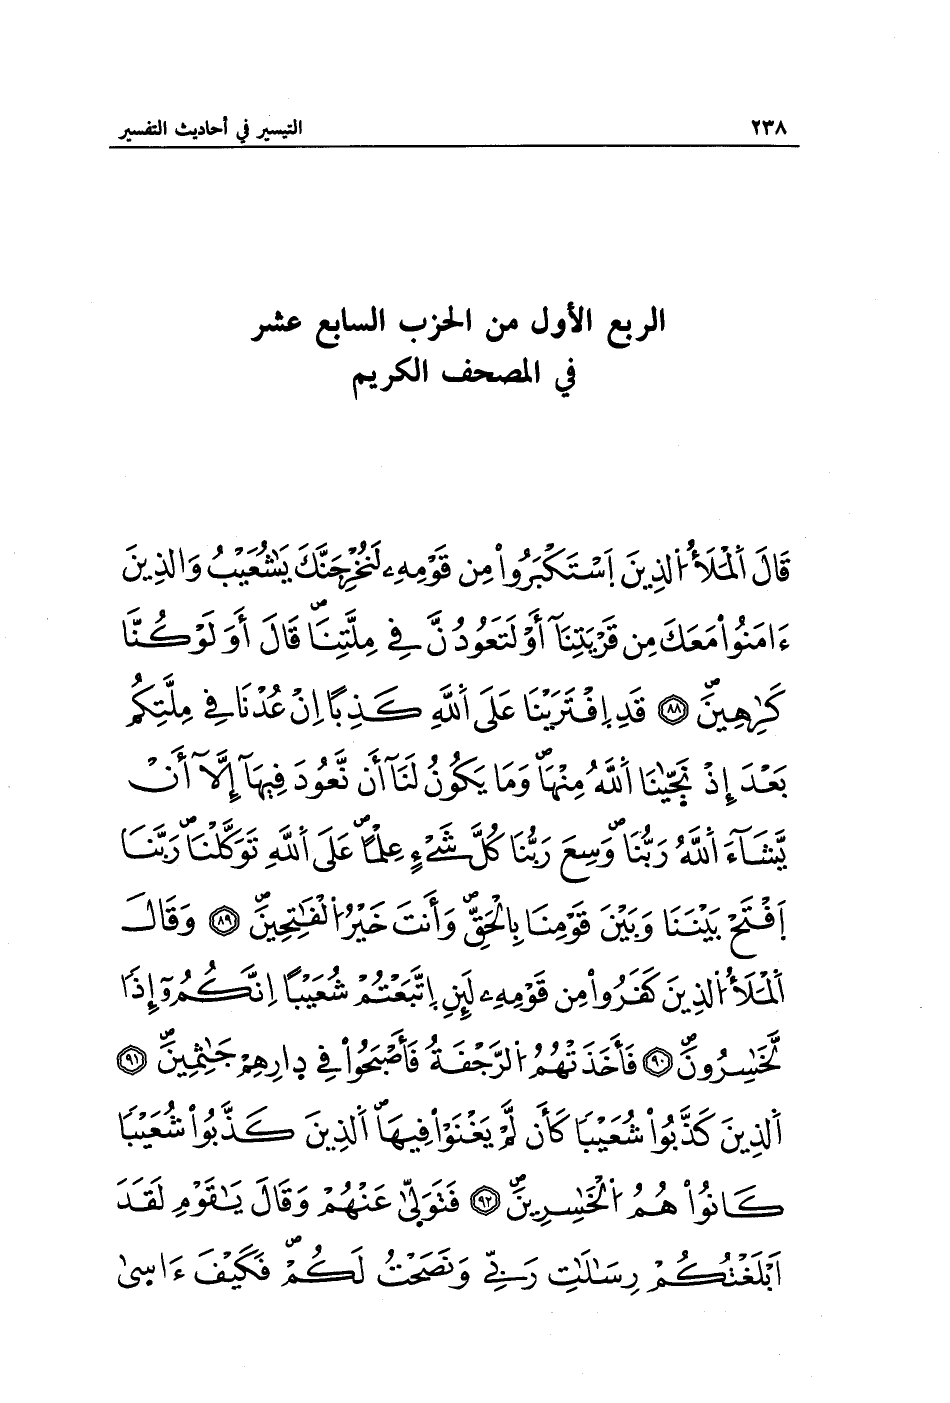 ٢٣٨ التيسير في أحاديث التفسير
الربع الأول من الحزب السابع عشر
في المصحف الكريم
قَالَ اَلْمَلَأُ اُ۬لذِينَ اَسْتَكْبَرُواْ مِن قَوْمِهِۦ لَنُخْرِجَنَّكَ يَٰشُعَيْبُ وَالذِينَ
ءَامَنُواْ مَعَكَ مِن قَرْيَتِنَآ أَوْ لَتَعُودُنَّ فِے مِلَّتِنَاۖ قَالَ أَوَلَوْ كُنَّا
كَٰرِهِينَۖ ٨٨ قَدِ اِفْتَرَيْنَا عَلَى اَللَّهِ كَذِباً اِنْ عُدْنَا فِے مِلَّتِكُم
بَعْدَ إِذْ نَجّ۪يٰنَا اَللَّهُ مِنْهَاۖ وَمَا يَكُونُ لَنَآ أَن نَّعُودَ فِيهَآ إِلَّآ أَنْ
يَّشَآءَ اَللَّهُ رَبُّنَاۖ وَسِعَ رَبُّنَا كُلَّ شَےْءٍ عِلْماًۖ عَلَى اَللَّهِ تَوَكَّلْنَاۖ رَبَّنَا
اَفْتَحْ بَيْنَنَا وَبَيْنَ قَوْمِنَا بِالْحَقِّۖ وَأَنتَ خَيْرُ اُ۬لْفَٰتِحِينَۖ ٨٩ وَقَالَ
اَلْمَلَأُ اُ۬لذِينَ كَفَرُواْ مِن قَوْمِهِۦ لَئِنِ اِتَّبَعْتُمْ شُعَيْباً اِنَّكُمُۥٓ إِذاً
لَّخَٰسِرُونَۖ ٩٠ فَأَخَذَتْهُمُ اُ۬لرَّجْفَةُ فَأَصْبَحُواْ فِے دِارِهِمْ جَٰثِمِينَۖ ٩١
اَلذِينَ كَذَّبُواْ شُعَيْباً كَأَن لَّمْ يَغْنَوْاْ فِيهَاۖ اَلذِينَ كَذَّبُواْ شُعَيْباً
كَانُواْ هُمُ اُ۬لْخَٰسِرِينَۖ ٩٢ فَتَوَلّ۪يٰ عَنْهُمْ وَقَالَ يَٰقَوْمِ لَقَدَ
اَبْلَغْتُكُمْ رِسَٰلَٰتِ رَبِّے وَنَصَحْتُ لَكُمْۖ فَكَيْفَ ءَاس۪يٰ